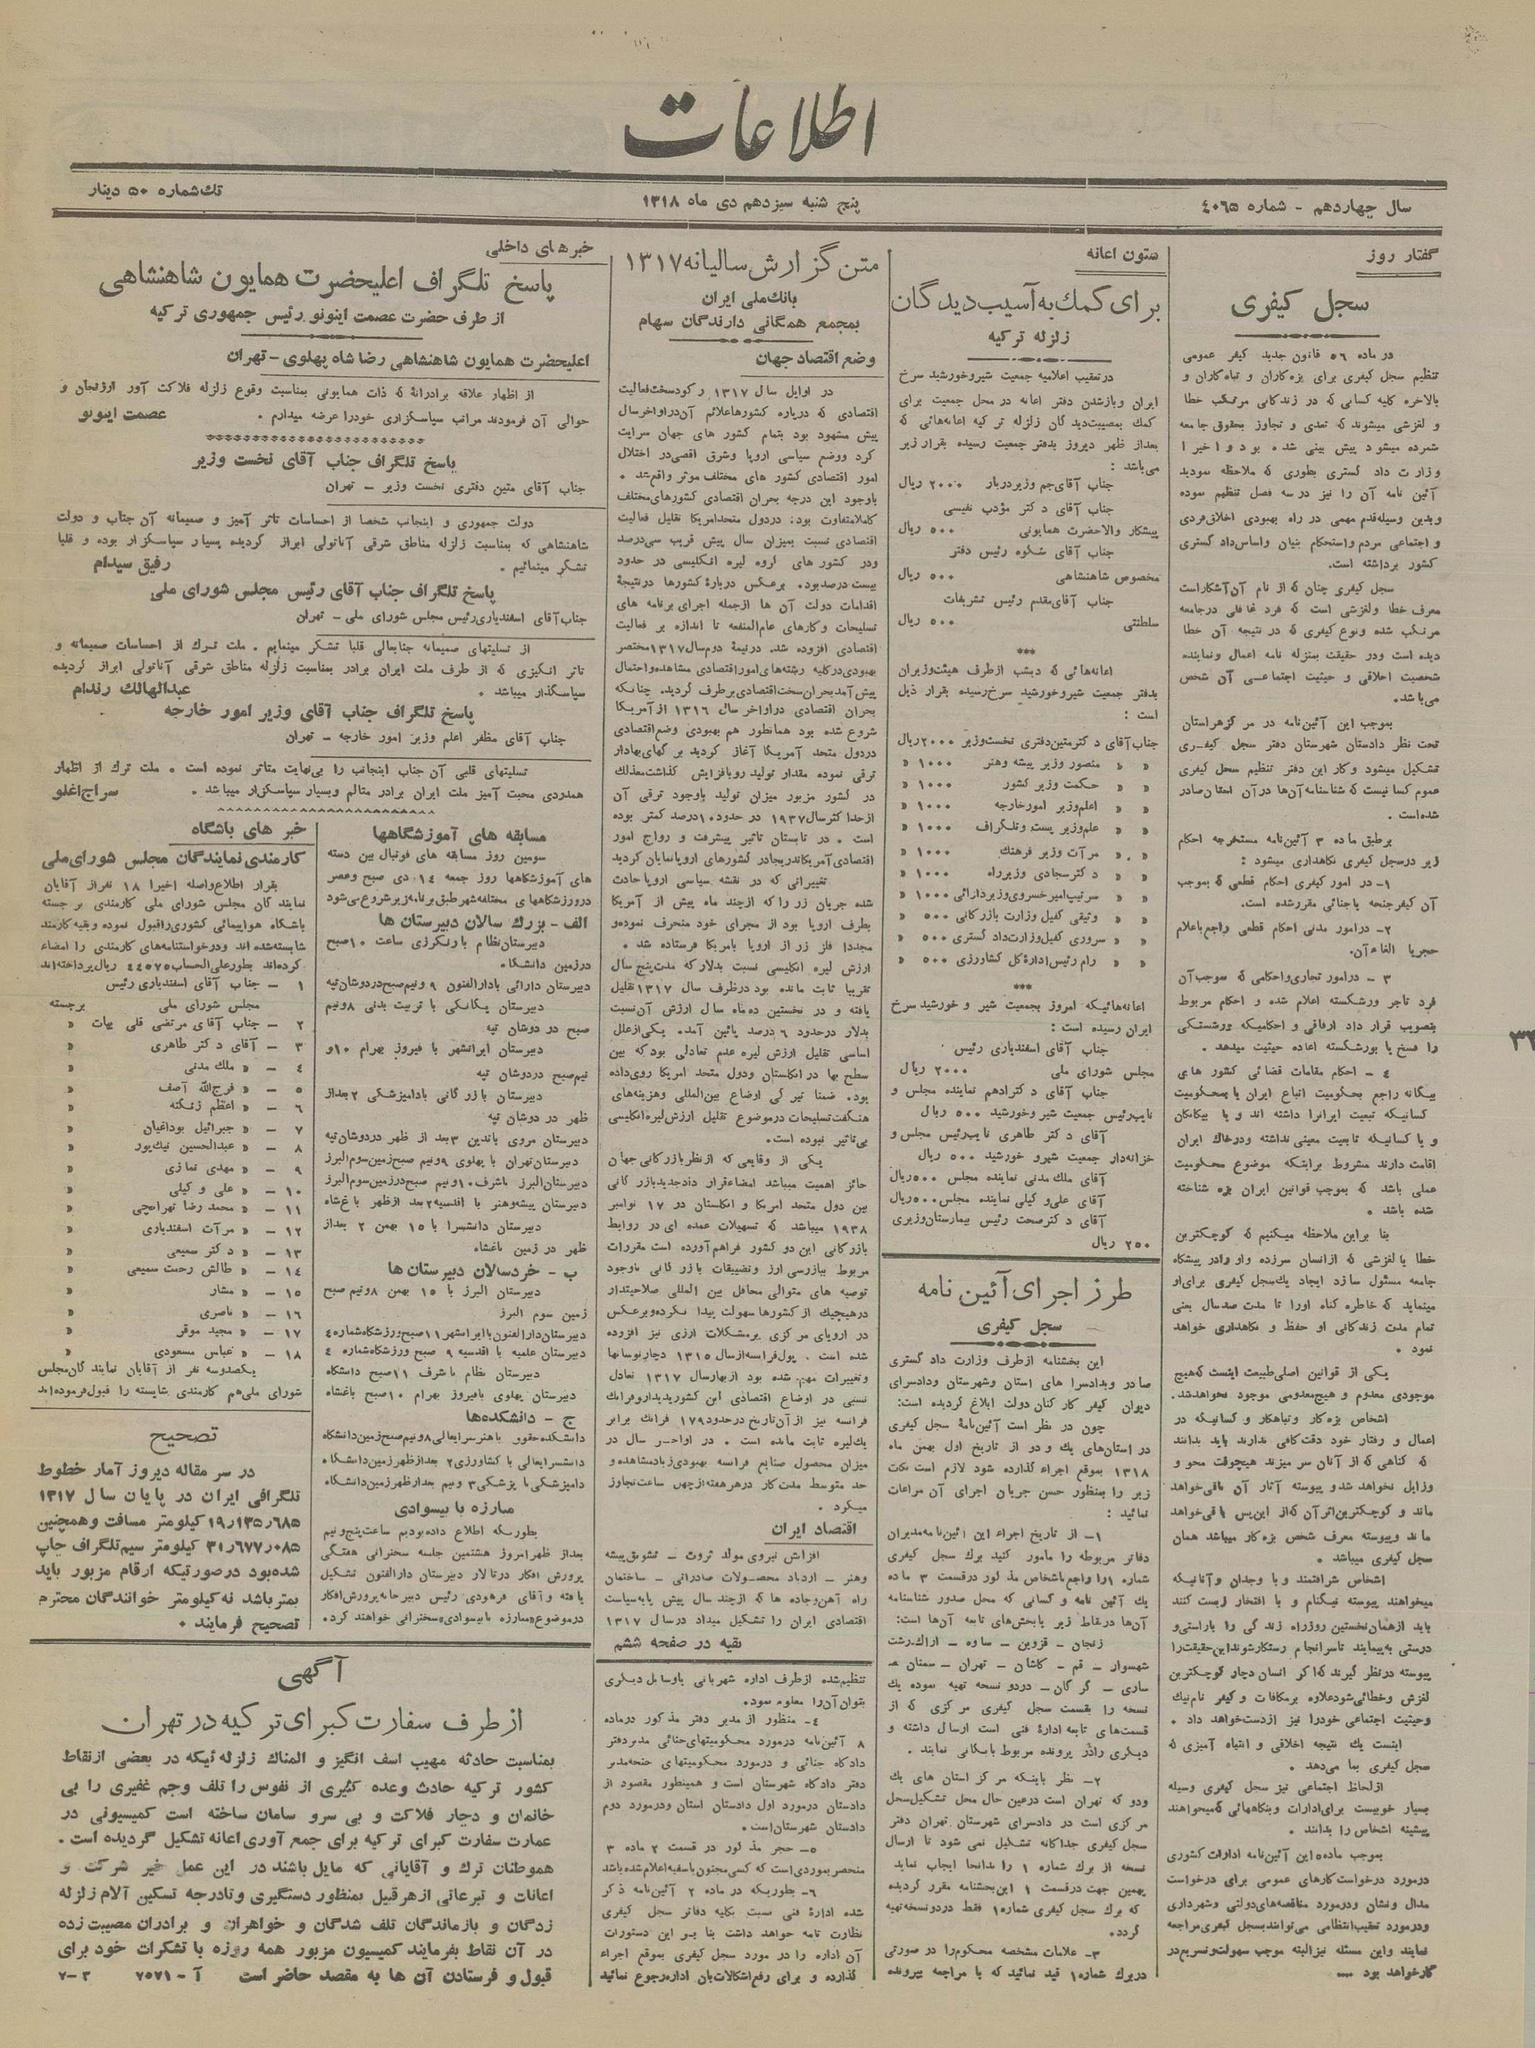 اطلاعات
سال چهاردهم - شماره ٤٠٦٥
پنج شنبه سیزدهم دی ماه ۱۳۱۸
تك شماره ۵۰ دینار
گفتار روز
سجل کیفری
در ماده ٥٦ قانون جدید کیفر عمومی
تنظیم سجل کیفری برای بزه کاران و تباه کاران و
بالاخره کلیه کسانی که در زندگانی مرتکب خطا
و لغزشی میشوند که تعدی و تجاوز بحقوق جامعه
شمرده میشود پیش بینی شده بود و اخیرا
وزارت دادگستری بطوری که ملاحظه نمودید
آئین نامه آن را نیز در سه فصل تنظیم نموده
وبدین وسیله قدم مهمی در راه بهبودی اخلاق فردی
و اجتماعی مردم و استحکام بنیان و اساس دادگستری
کشور برداشته است.
سجل کیفری چنان که از نام آن آشکار است
معرف خطا ولغزشی است که فرد خاطی در جامعه
مرتکب شده ونوع کیفری که در نتیجه آن خطا
دیده است ودر حقیقت بمنزله نامه اعمال ونماینده
شخصیت اخلاقی و حیثیت اجتماعی آن شخص
می‌باشد.
بموجب این آئین‌نامه در مرکز هر استان
تحت نظر دادستان شهرستان دفتر سجل کیفری
تشکیل میشود و کار این دفتر تنظیم سجل کیفری
عموم کسانیست که شناسنامه آن‌ها در آن استان صادر
شده است.
برطبق ماده ۳ آئین‌نامه مستخرجه احکام
زیر درسجل کیفری نگاهداری میشود :
۱- در امور کیفری احکام قطعی که بموجب
آن کیفر جنحه یا جنائی مقرر شده است.
۲- درامور مدنی احکام قطعی راجع باعلام
حجر یا الغاء آن.
۳ - درامور تجاری واحکامی که بموجب آن
فرد تاجر ورشکسته اعلام شده و احکام مربوط
بتصویب قرار داد ارفاقی و احکامیکه ورشکستگی
را فسخ یا بورشکسته اعاده حیثیت میدهد .
٤ - احکام مقامات قضائی کشور های
بیگانه راجع بحکومیت اتباع ایران یا بمحکومیت
کسانیکه تبعیت ایرانرا داشته اند و یا بیگانگان
و یا کسانیکه تابعیت معینی نداشته ودرخاك ایران
اقامت دارند مشروط براینکه موضوع محکومیت
عملی باشد که بموجب قوانین ایران بزه شناخته
شده باشد .
بنا براین ملاحظه میکنیم که کوچکترین
خطا یا لغزشی که از انسان سرزده واو را در پیشگاه
جامعه مسئول سازد ایجاد یك سجل کیفری برای او
مینماید که خاطره گناه اورا تا مدت صد سال یعنی
تمام مدت زندگانی او حفظ و نگاهداری خواهد
نمود .
یکی از قوانین اصلی طبیعت اینست که هیچ
موجودی معدوم و هیچ معدومی موجود نخواهد شد.
اشخاص بزه کار و تباهکار و کسانیکه در
اعمال و رفتار خود دقت کافی ندارند باید بدانند
که گناهی که از آنان سر میزند هیچوقت محو و
وزایل نخواهد شد و پیوسته آثار آن باقی خواهد
ماند و کوچکترین اثر آن که از این پس باقی خواهد
ماند وپیوسته معرف شخص بزه کار میباشد همان
سجل کیفری میباشد .
اشخاص شرافتمند و با وجدان و آنانیکه
میخواهند پیوسته نیکنام و با افتخار زیست کنند
باید از همان نخستین روز راه زندگی را با راستی و
درستی به‌پیمایند تا سرانجام رستکار شوند این حقیقت را
پیوسته در نظر گیرند که اگر انسان دچار کوچکترین
لغزش وخطائی شود علاوه بر مکافات و کیفر نام نیك
وحیثیت اجتماعی خودرا نیز از دست خواهد داد .
اینست یك نتیجه اخلاقی و انتباه آمیزی که
سجل کیفری بما می‌دهد .
از لحاظ اجتماعی نیز سجل کیفری وسیله
بسیار خوبیست برای ادارات و بنگاههائی که میخواهند
پیشینه اشخاص را بدانند .
بموجب ماده ٥ این آئین‌نامه ادارات کشوری
درمورد درخواست کارهای عمومی برای درخواست
مدال و نشان ودرمورد مناقصه‌های دولتی و شهرداری
ودرمورد تعقیب انتظامی می‌توانند بسجل کیفری مراجعه
نمایند واین مسئله نیز البته موجب سهولت و تسریع در
کار خواهد بود ....
ستون اعانه
برای کمك به آسیب دیدگان
زلزله ترکیه
در تعقیب اعلامیه جمعیت شیر وخورشید سرخ
ایران وباز شدن دفتر اعانه در محل جمعیت برای
کمك بمصیبت دیدگان زلزله ترکیه اعانه‌هائی که
بعد از ظهر دیروز بدفتر جمعیت رسیده بقرار زیر
می‌باشد :
جناب آقای جم وزیر دربار ۲۰۰۰ ریال
جناب آقای دکتر مؤدب نفیسی
پیشکار والاحضرت همایونی ۵۰۰ ریال
جناب آقای شکوه رئیس دفتر
مخصوص شاهنشاهی ۵۰۰ ریال
جناب آقای مقدم رئیس تشریفات
سلطنتی ۵۰۰ ریال
***
اعانه‌هائی که دیشب از طرف هیئت وزیران
بدفتر جمعیت شیر وخورشید سرخ رسیده بقرار ذیل
است :
جناب آقای دکتر متین دفتری نخست وزیر ۲۰۰۰ ریال
« « منصور وزیر پیشه و هنر ۱۰۰۰ «
« « حکمت وزیر کشور ۱۰۰۰ «
« « اعلم وزیر امور خارجه ۱۰۰۰ «
« « علم وزیر پست و تلگراف ۱۰۰۰ «
« « مرآت وزیر فرهنك ۱۰۰۰ «
« « دکتر سجادی وزیر راه ۱۰۰۰ «
« « سرتیپ امیر خسروی وزیر دارائی ۱۰۰۰ «
« « وثیقی کفیل وزارت بازرگانی ۵۰۰ «
« « سروری کفیل وزارت دادگستری ۵۰۰ «
« « رام رئیس ادارهٔ کل کشاورزی ۵۰۰ «
***
اعانه‌هائیکه امروز بجمعیت شیر و خورشید سرخ
ایران رسیده است :
جناب آقای اسفندیاری رئیس
مجلس شورای ملی ۲۰۰۰ ریال
جناب آقای دکتر ادهم نماینده مجلس و
نایب رئیس جمعیت شیر وخورشید ۵۰۰ ریال
آقای دکتر طاهری نایب رئیس مجلس و
خزانه‌دار جمعیت شیر و خورشید ۵۰۰ ریال
آقای ملك مدنی نماینده مجلس ۵۰۰ ریال
آقای علی وکیلی نماینده مجلس ۵۰۰ ریال
آقای دکتر صحت رئیس بیمارستان وزیری
۲۵۰ ریال
طرز اجرای آئین نامه
سجل کیفری
این بخشنامه از طرف وزارت دادگستری
صادر وبدادسرا های استان وشهرستان ودادسرای
دیوان کیفر کارکنان دولت ابلاغ گردیده است:
چون در نظر است آئین‌نامهٔ سجل کیفری
در استان‌های یك و دو از تاریخ اول بهمن ماه
۱۳۱۸ بموقع اجراء گذارده شود لازم است نکات
زیر را بمنظور حسن جریان اجرای آن مراعات
نمائید :
۱- از تاریخ اجراء این آئین‌نامه مدیران
دفاتر مربوطه را مامور کنید برك سجل کیفری
شماره ۱ را راجع باشخاص مذکور در قسمت ۳ ماده
یك آئین نامه و کسانی که محل صدور شناسنامه
آن‌ها در نقاط زیر یا بخش‌های تابعه آن‌ها است:
زنجان - قزوین - ساوه - اراك - رشت
شهسوار - قم - کاشان - تهران - سمنان -
ساری - گرگان - در دو نسخه تهیه نموده یك
نسخه را بقسمت سجل کیفری مرکزی که از
قسمت‌های تابعه ادارهٔ فنی است ارسال داشته و
دیگری را در پرونده مربوط بایگانی نمایند .
۲- نظر باینکه مرکز استان های یك
ودو که تهران است درعین حال محل تشکیل سجل
مرکزی است در دادسرای شهرستان تهران دفتر
سجل کیفری جداگانه تشکیل نمی شود تا ارسال
نسخه از برك شماره ۱ را بدانجا ایجاب نماید
بهمین جهت در قسمت ۱ این بخشنامه مقرر گردیده
که برك سجل کیفری شماره ۱ فقط در دو نسخه تهیه
گردد.
۳- علامات مشخصه محکوم را در صورتی
در برك شماره ۱ قید نمائید که با مراجعه بپرونده
متن گزارش سالیانه ۱۳۱۷
بانك ملی ایران
بمجمع همگانی دارندگان سهام
وضع اقتصاد جهان
در اوایل سال ۱۳۱۷ رکود سخت فعالیت
اقتصادی که درباره کشورها علائم آن در اواخر سال
پیش مشهود بود بتمام کشور های جهان سرایت
کرد ووضع سیاسی اروپا وشرق اقصی در اختلال
امور اقتصادی کشور های مختلف موثر واقع شد .
باوجود این درجه بحران اقتصادی کشورهای مختلف
کاملا متفاوت بود: در دول متحد امریکا تقلیل فعالیت
اقتصادی نسبت بمیزان سال پیش قریب سی درصد
ودر کشور های گروه لیره انگلیسی در حدود
بیست درصد بود . برعکس دربارهٔ کشورها در نتیجهٔ
اقدامات دولت آن ها از جمله اجرای برنامه های
تسلیحات وکارهای عام‌المنفعه تا اندازه بر فعالیت
اقتصادی افزوده شد. در نیمهٔ دوم سال ۱۳۱۷ مختصر
بهبودی در کلیه رشته‌های امور اقتصادی مشاهده و احتمال
پیش آمد بحران سخت اقتصادی برطرف گردید. چنانکه
بحران اقتصادی در اواخر سال ۱۳۱٦ از آمریکا
شروع شده بود همانطور هم بهبودی وضع اقتصادی
در دول متحد آمریکا آغاز گردید برگهای بهادار
ترقی نموده مقدار تولید رو بافزایش گذاشت معذلك
در کشور مزبور میزان تولید با وجود ترقی آن
از حد اکثر سال ۱۹۳۷ در حدود ۱۰ درصد کمتر بوده
است . در تابستان تاثیر پیشرفت و رواج امور
اقتصادی آمریکا تدریجا در کشورهای اروپا نمایان گردید
تغییراتی که در نقشه سیاسی اروپا حادث
شده جریان زر را که از چند ماه پیش از آمریکا
بطرف اروپا بود از مجرای خود منحرف نموده و
مجددا فلز زر از اروپا بامریکا فرستاده شد .
ارزش لیره انگلیسی نسبت بدلار که مدت پنج سال
تقریبا ثابت مانده بود در ظرف سال ۱۳۱۷ تقلیل
یافته و در نخستین ده ماه سال ارزش آن نسبت
بدلار در حدود ٦ درصد پائین آمد. یکی از علل
اساسی تقلیل ارزش لیره عدم تعادلی بود که بین
سطح بها در انگلستان ودول متحد امریکا روی داده
بود. ضمنا تیرگی اوضاع بین‌المللی وهزینه‌های
هنگفت تسلیحات در موضوع تقلیل ارزش لیره انگلیسی
بی‌تاثیر نبوده است.
یکی از وقایعی که از نظر بازرگانی جهان
حائز اهمیت میباشد امضاء قرارداد جدید بازرگانی
بین دول متحد امریکا و انگلستان در ۱۷ نوامبر
۱۹۳۸ میباشد که تسهیلات عمده ای در روابط
بازرگانی این دو کشور فراهم آورده است مقررات
مربوط ببازرسی ارز و تضییقات بازرگانی باوجود
توصیه های متوالی محافل بین المللی صلاحیتدار
در هیچیك از کشورها سهولت پیدا نکرده و بر عکس
در اروپای مرکزی بر مشکلات ارزی نیز افزوده
شده است . پول فرانسه از سال ۱۳۱۵ دچار نوسانها
وتغییرات مهم شده بود از بهار سال ۱۳۱۷ تعادل
نسبی در اوضاع اقتصادی این کشور پدیدار و فرانك
فرانسه نیز از آن تاریخ در حدود ۱۷۹ فرانك برابر
یك لیره ثابت مانده است . در اواخر سال در
میزان محصول صنایع فرانسه بهبودی زیاد مشاهده و
حد متوسط مدت کار در هر هفته از چهل ساعت تجاوز
میکرد .
اقتصاد ایران
افزایش نیروی مولد ثروت - تشویق پیشه
وهنر - ازدیاد محصولات صادراتی - ساختمان
راه آهن وجاده ها که از چند سال پیش پایه سیاست
اقتصادی ایران را تشکیل میداد در سال ۱۳۱۷
بقیه در صفحه ششم
تنظیم شده از طرف اداره شهربانی یا وسایل دیگری
بتوان آن را معلوم نمود.
٤- منظور از مدیر دفتر مذکور در ماده
۸ آئین‌نامه درمورد محکومیتهای جنائی مدیر دفتر
دادگاه جنائی و درمورد محکومیتهای جنحه مدیر
دفتر دادگاه شهرستان است و همینطور مقصود از
دادستان درمورد اول دادستان استان ودرمورد دوم
دادستان شهرستان است.
٥- حجر مذکور در قسمت ۲ ماده ۳
منحصر بموردی است که کسی مجنون یا سفیه اعلام شده باشد
٦- بطوریکه در ماده ۲ آئین‌نامه ذکر
شده ادارهٔ فنی نسبت بکلیه دفاتر سجل کیفری
نظارت تامه خواهد داشت بنابر این دستورات
آن اداره را در مورد سجل کیفری بموقع اجراء
گذارده و برای رفع اشکالات بان اداره رجوع نمائید
خبرهای داخلی
پاسخ تلگراف اعلیحضرت همایون شاهنشاهی
از طرف حضرت عصمت اینونو رئیس جمهوری ترکیه
اعلیحضرت همایون شاهنشاهی رضا شاه پهلوی - تهران
از اظهار علاقه برادرانهٔ که ذات همایونی بمناسبت وقوع زلزله فلاکت آور ارزنجان و
حوالی آن فرمودند مراتب سپاسگزاری خودرا عرضه میدارم . عصمت اینونو
پاسخ تلگراف جناب آقای نخست وزیر
جناب آقای متین دفتری نخست وزیر - تهران
دولت جمهوری و اینجانب شخصا از احساسات تاثر آمیز و صمیمانه آن جناب و دولت
شاهنشاهی که بمناسبت زلزله مناطق شرقی آناتولی ابراز گردیده بسیار سپاسگزار بوده و قلبا
تشکر مینمائیم . رفیق سیدام
پاسخ تلگراف جناب آقای رئیس مجلس شورای ملی
جناب آقای اسفندیاری رئیس مجلس شورای ملی - تهران
از تسلیتهای صمیمانه جنابعالی قلبا تشکر مینمایم . ملت ترك از احساسات صمیمانه و
تاثر انگیزی که از طرف ملت ایران برادر بمناسبت زلزله مناطق شرقی آناتولی ابراز گردیده
سپاسگذار میباشد . عبدالهالك رندام
پاسخ تلگراف جناب آقای وزیر امور خارجه
جناب آقای مظفر اعلم وزیر امور خارجه - تهران
تسلیتهای قلبی آن جناب اینجانب را بی‌نهایت متاثر نموده است . ملت ترك از اظهار
همدردی محبت آمیز ملت ایران برادر متالم وبسیار سپاسگزار میباشد . سراج اغلو
مسابقه های آموزشگاهها
سومین روز مسابقه های فوتبال بین دسته
های آموزشگاهها روز جمعه ۱٤ دی صبح وعصر
در ورزشگاه‌های مختلفه شهر طبق برنامه زیر شروع می‌شود
الف - بزرك سالان دبیرستان ها
دبیرستان نظام با رنگرزی ساعت ۱۰ صبح
در زمین دانشگاه.
دبیرستان دارائی با دارالفنون ۹ ونیم صبح در دوشان تپه
دبیرستان پکانکی با تربیت بدنی ۸ ونیم
صبح در دوشان تپه
دبیرستان ایرانشهر با فیروز بهرام ۱۰ و
نیم صبح در دوشان تپه
دبیرستان بازرگانی با دامپزشکی ۲ بعد از
ظهر در دوشان تپه
دبیرستان مروی با تدین ۳ بعد از ظهر در دوشان تپه
دبیرستان تهران با پهلوی ۹ ونیم صبح زمین سوم البرز
دبیرستان البرز با شرف ۱۰ ونیم صبح در زمین سوم البرز
دبیرستان پیشه وهنر با اقدسیه ۲ بعد از ظهر باغ شاه
دبیرستان دانشسرا با ۱۵ بهمن ۲ بعد از
ظهر در زمین باغشاه
ب - خردسالان دبیرستان ها
دبیرستان البرز با ۱۵ بهمن ۸ ونیم صبح
زمین سوم البرز
دبیرستان دارالفنون با ایرانشهر ۱۱ صبح ورزشگاه شماره ٤
دبیرستان علمیه با اقدسیه ۹ صبح ورزشگاه شماره ٤
دبیرستان نظام با شرف ۱۱ صبح دانشگاه
دبیرستان پهلوی با فیروز بهرام ۱۰ صبح باغشاه
ج - دانشکده‌ها
دانشکده حقوق با هنرسرایعالی ۸ ونیم صبح زمین دانشگاه
دانشسرایعالی با کشاورزی ۲ بعد از ظهر زمین دانشگاه
دامپزشکی با پزشکی ۳ ونیم بعد از ظهر زمین دانشگاه
مبارزه با بیسوادی
بطوریکه اطلاع داده بودیم ساعت پنج ونیم
بعد از ظهر امروز هشتمین جلسه سخنرانی هفتگی
پرورش افکار در تالار دبیرستان دارالفنون تشکیل
یافته و آقای فرهودی رئیس دبیرخانه پرورش افکار
در موضوع «مبارزه با بیسوادی» سخنرانی خواهند کرد.
خبر های باشگاه
کارمندی نمایندگان مجلس شورای ملی
بقرار اطلاع واصله اخیرا ۱۸ نفر از آقایان
نمایندگان مجلس شورای ملی کارمندی برجسته
باشگاه هواپیمائی کشوری را قبول نموده و بقیه کارمند
شایسته شده اند ودرخواستنامه‌های کارمندی را امضاء
کرده‌اند بطور علی الحساب ٤٤٥٧٥ ریال پرداخته اند
۱ - جناب آقای اسفندیاری رئیس
مجلس شورای ملی برجسته
۲ - جناب آقای مرتضی قلی بیات «
۳ - آقای دکتر طاهری «
٤ - « ملك مدنی «
٥ - « فرج‌الله آصف «
٦ - « اعظم زنگنه «
۷ - « جبرائیل بوداغیان «
۸ - « عبدالحسین نیك پور «
۹ - « مهدی نمازی «
۱۰ - « علی وکیلی «
۱۱ - « محمد رضا تهرانچی «
۱۲ - « مرآت اسفندیاری «
۱۳ - « دکتر سمیعی «
۱٤ - « طالش رحمت سمیعی «
۱۵ - « مشار «
۱٦ - « ناصری «
۱۷ - « مجید موقر «
۱۸ - « عباس مسعودی «
یکصد و سه نفر از آقایان نمایندگان مجلس
شورای ملی هم کارمندی شایسته را قبول فرموده‌اند
تصحیح
در سر مقاله دیروز آمار خطوط
تلگرافی ایران در پایان سال ۱۳۱۷
۱۹٫۱۳۵٫٦۸۵ کیلومتر مسافت وهمچنین
۳۱٫٦۷۷٫۰۸۵ کیلومتر سیم تلگراف چاپ
شده بود در صورتیکه ارقام مزبور باید
بمتر باشد نه کیلومتر خوانندگان محترم
تصحیح فرمایند .
آگهی
از طرف سفارت کبرای ترکیه در تهران
بمناسبت حادثه مهیب اسف انگیز و المناك زلزله ئیکه در بعضی از نقاط
کشور ترکیه حادث وعده کثیری از نفوس را تلف وجم غفیری را بی
خانمان و دچار فلاکت و بی سرو سامان ساخته است کمیسیونی در
عمارت سفارت کبرای ترکیه برای جمع آوری اعانه تشکیل گردیده است .
هموطنان ترك و آقایانی که مایل باشند در این عمل خیر شرکت و
اعانات و تبرعاتی از هر قبیل بمنظور دستگیری وتادرجه تسکین آلام زلزله
زدگان و بازماندگان تلف شدگان و خواهران و برادران مصیبت زده
در آن نقاط بفرمایند کمیسیون مزبور همه روزه با تشکرات خود برای
قبول و فرستادن آن ها به مقصد حاضر است آ - ۷۵۷۱ ۳-۷